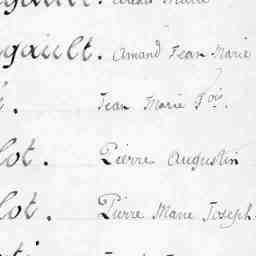 gault. Amand Jean Marie
t. Jean Marie Fois.
lot. Pierre Augustin
lot. Pierre Marie Joseph